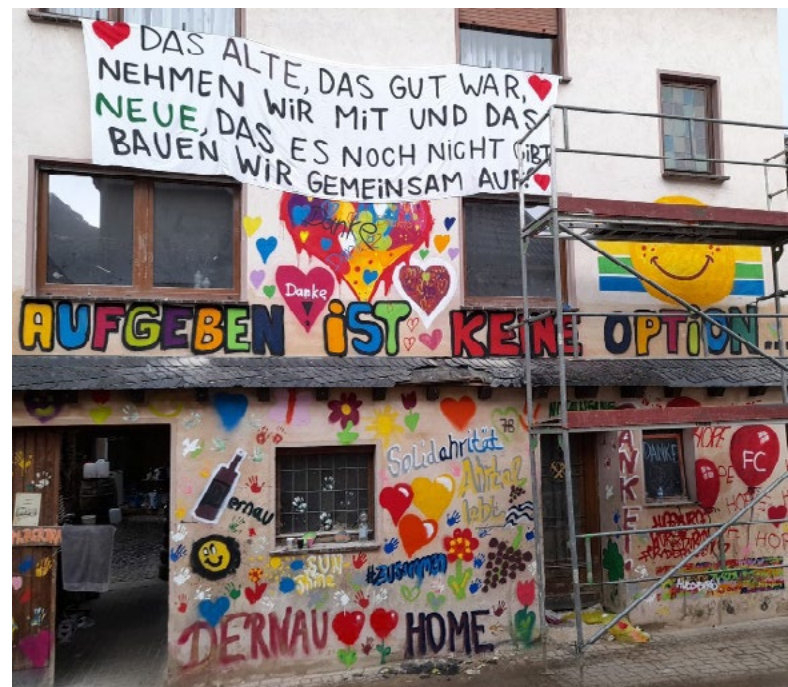 DAS ALTE, DAS GUT WAR,
NEHMEN WIR MIT UND DAS
NEUE, DAS ES NOCH NICHT GIBT
BAUEN WIR GEMEINSAM AUF!
Danke
Danke
AUFGEBEN IST KEINE OPTION...
78
Solidahrität
Ahrtal
lebt
ernau
SUN
Shine
#ZUSAMMEN
DERNAU HOME
DANKE
HOPE
DANKE
FC
HOPE
HOPE